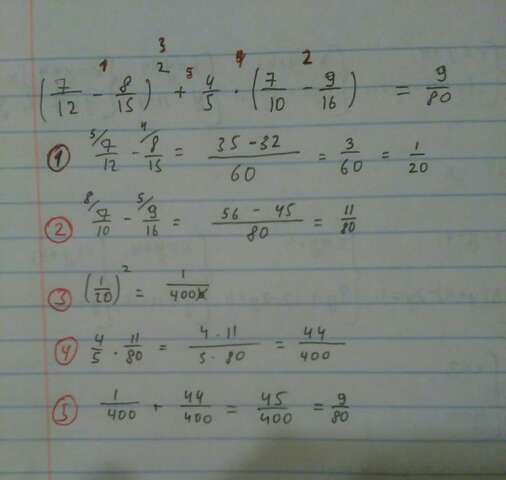 1 3 2 5 4 2
(7/12 - 8/15)² + 4/5 · (7/10 - 9/16) = 9/80
① 5/ 7/12 - 4/ 8/15 = 35 - 32 / 60 = 3/60 = 1/20
② 8/ 7/10 - 5/ 9/16 = 56 - 45 / 80 = 11/80
③ (1/20)² = 1/400
④ 4/5 · 11/80 = 4 · 11 / 5 · 80 = 44/400
⑤ 1/400 + 44/400 = 45/400 = 9/80